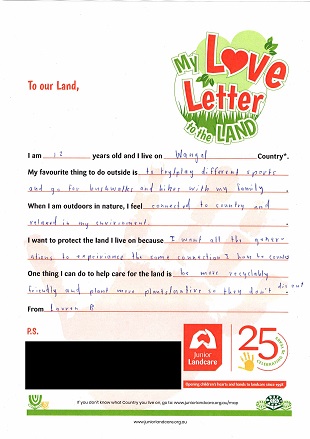 My Love
Letter
to the LAND
To our Land,
I am 12 years old and I live on Wangal Country*.
My favourite thing to do outside is to try/play different sports
and go for bushwalks and hikes with my family
When I am outdoors in nature, I feel connected to country and
relaxed in my environment.
I want to protect the land I live on because I want all the gener-
ations to experience the same connection I have to country
One thing I can do to help care for the land is be more recyclably
friendly and plant more plants/native so they don't die out
From Lauren R
P.S.
Junior
Landcare
25
YEARS OF JUNIOR LANDCARE
Opening children's hearts and minds to landcare since 1998
If you don't know what Country you live on, go to: www.juniorlandcare.org.au/map
www.juniorlandcare.org.au